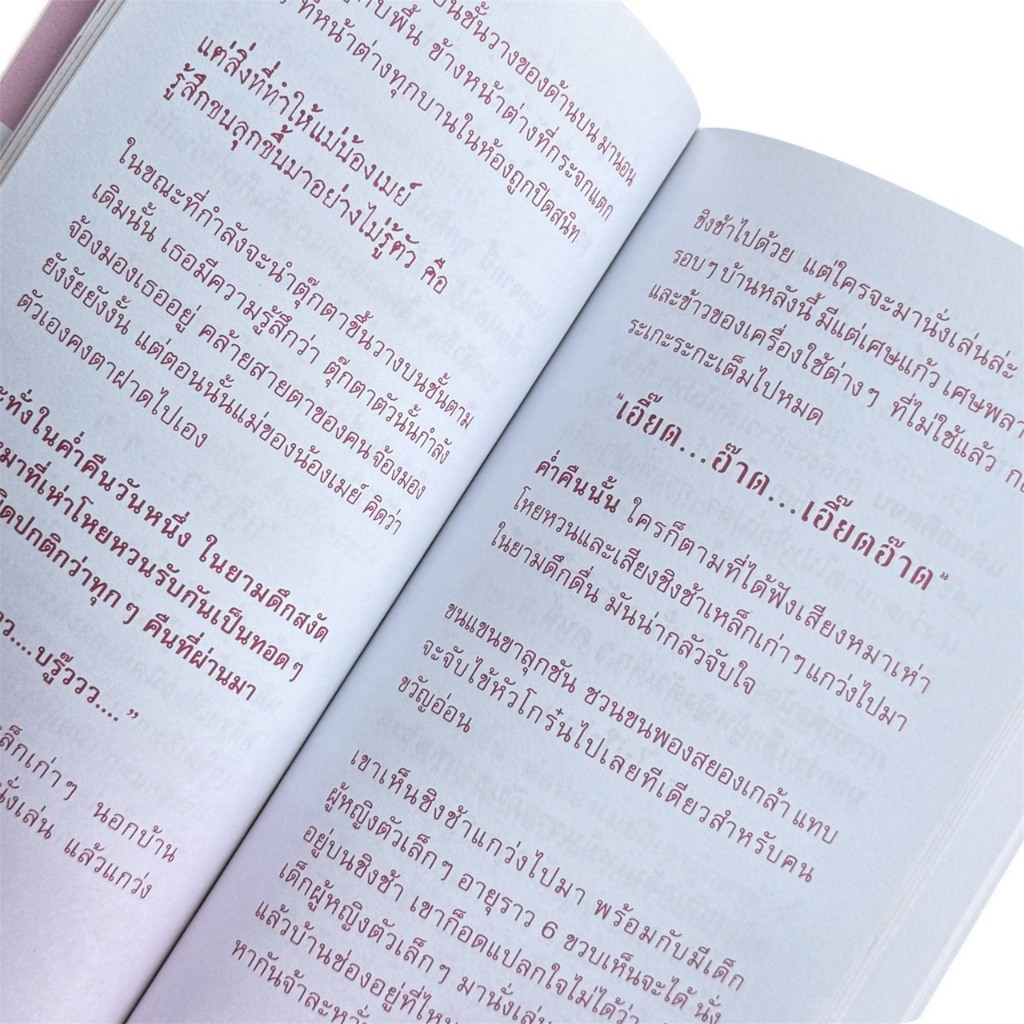 บนชั้นวางของด้านบน มานอน
กับพื้น ข้างหน้าต่างที่กระจกแตก
ที่หน้าต่างทุกบานในห้องถูกปิดสนิท
แต่สิ่งที่ทำให้แม่น้องเมย์
รู้สึกขนลุกขึ้นมาอย่างไม่รู้ตัว คือ
ในขณะที่กำลังจะนำตุ๊กตาขึ้นวางบนชั้นตาม
เดิมนั้น เธอมีความรู้สึกว่า ตุ๊กตาตัวนั้นกำลัง
จ้องมองเธออยู่ คล้ายสายตาของคน จ้องมอง
ยังงัยยังงั้น แต่ตอนนั้นแม่ของน้องเมย์ คิดว่า
ตัวเองคงตาฝาดไปเอง
ในค่ำคืนวันหนึ่ง ในยามดึกสงัด
ที่เห่าโหยหวนรับกันเป็นทอดๆ
ผิดปกติกว่าทุกๆ คืนที่ผ่านมา
....บรู๊ววว....”
เก่าๆ นอกบ้าน
นั่งเล่น แล้วแกว่ง
ชิงช้าไปด้วย แต่ใครจะมานั่งเล่นล่ะ
รอบๆ บ้านหลังนี้ มีแต่เศษแก้ว
และข้าวของเครื่องใช้ต่างๆ ที่ไม่ใช้แล้ว
ระเกะระกะเต็มไปหมด
“เอี๊ยด...อ๊าด...เอี๊ยดอ๊าด”
ค่ำคืนนั้น ใครก็ตามที่ได้ฟังเสียงหมาเห่า
โหยหวนและเสียงชิงช้าเหล็กเก่าๆ แกว่งไปมา
ในยามดึกดื่น มันน่ากลัวจับใจ
ขนแขนขาลุกชัน ชวนขนพองสยองเกล้า แทบ
จะจับไข้หัวโกร๋นไปเลยทีเดียวสำหรับคน
ขวัญอ่อน
เขาเห็นชิงช้าแกว่งไปมา พร้อมกับมีเด็ก
ผู้หญิงตัวเล็กๆ อายุราว 6 ขวบเห็นจะได้ นั่ง
อยู่บนชิงช้า เขาก็อดแปลกใจไม่ได้ว่า
เด็กผู้หญิงตัวเล็กๆ มานั่งเล่น
แล้วบ้านช่องอยู่ที่ไหน
หากันจ้าละหวั่น